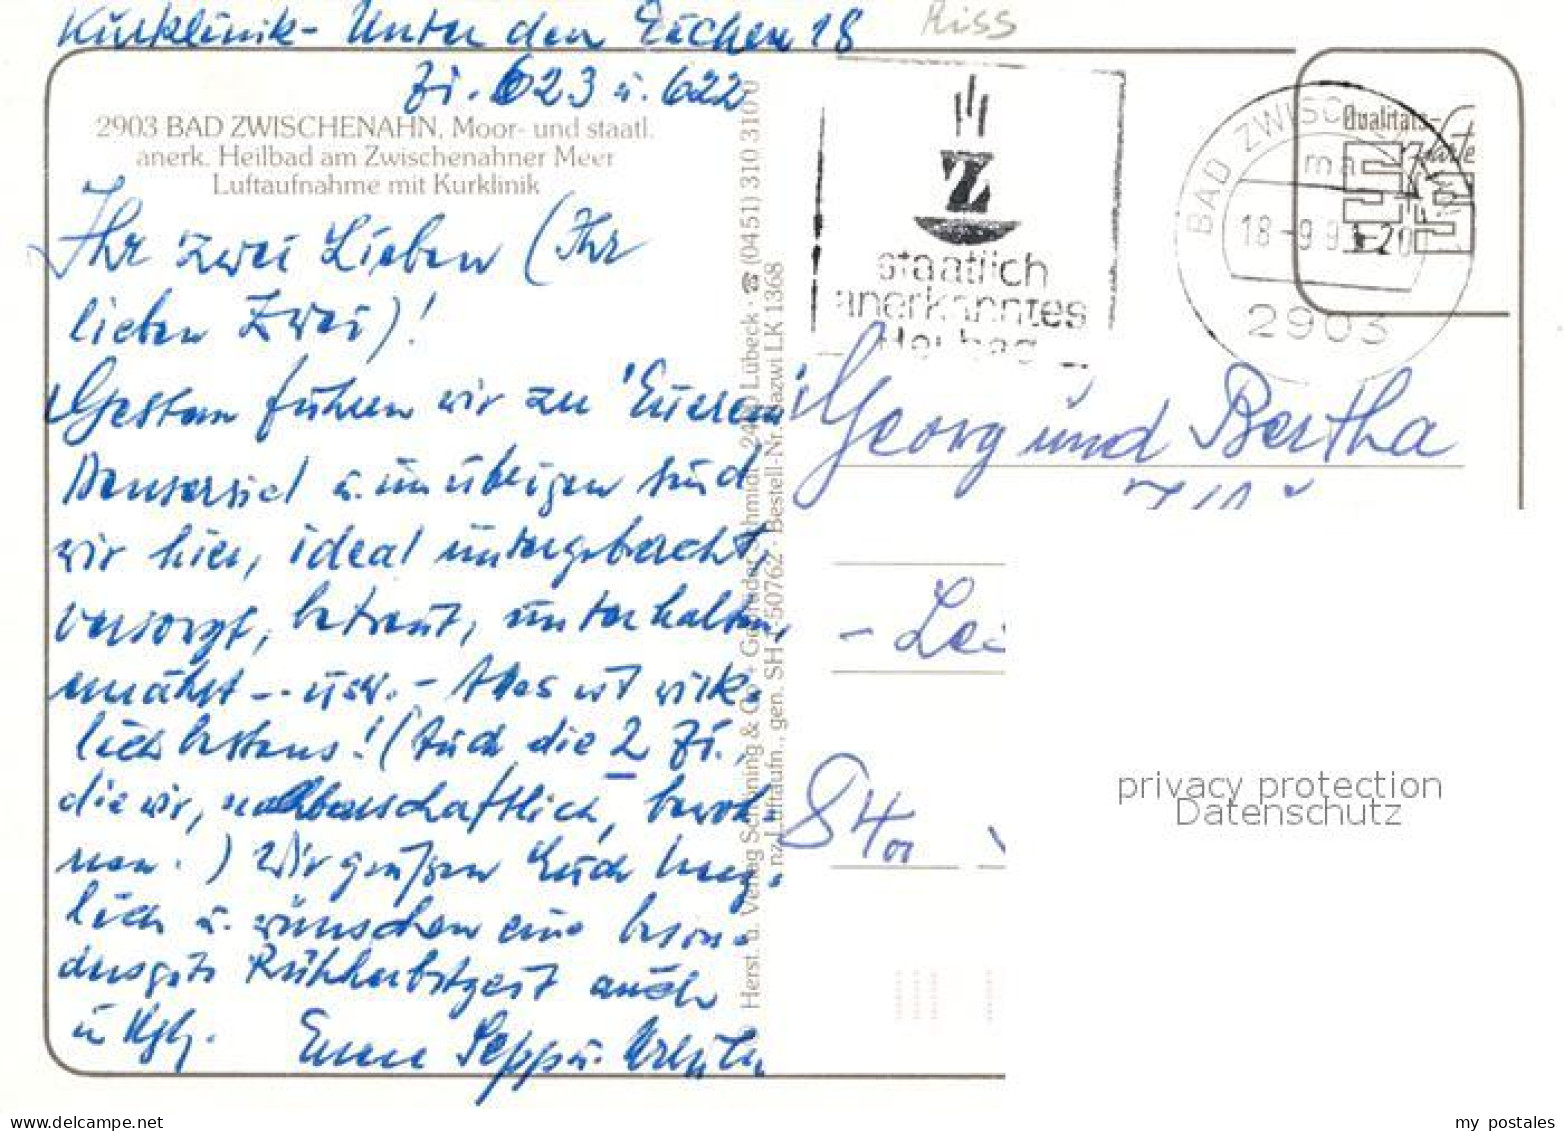 Kurklinik - Unter den Eichen 18
Riss
Zi. 623 u. 622
2903 BAD ZWISCHENAHN, Moor- und staatl.
anerk. Heilbad am Zwischenahner Meer
Luftaufnahme mit Kurklinik
Ihr zwei Lieben (Ihr
lieben Zwei)!
Gestern fuhren wir zu
u. im übrigen sind
wir hier, ideal untergebracht,
versorgt, betreut, unterhalten,
ernährt -- usw. - Alles ist wirk-
lich bestens! (Auch die 2 Zi.,
die wir, bewoh
nen.) Wir grüßen Euch herz-
lich u. wünschen eine beson-
ders gute auch
u
Eure Sepp u.
Herst. u. Verlag Schöning & Co + Gebrüder Schmidt · 2400 Lübeck · ☎ (0451) 310 310 0
nz. Luftaufn., gen. SH - 50762 · Bestell-Nr. Bazwi LK 1368
Z
staatlich
anerkanntes
Heilbad
BAD ZWISCHENAHN
mn
18 -9 9 -20
2903
Qualitäts-
Karte
Georg und Bertha
privacy protection
Datenschutz
my postales
www.delcampe.net